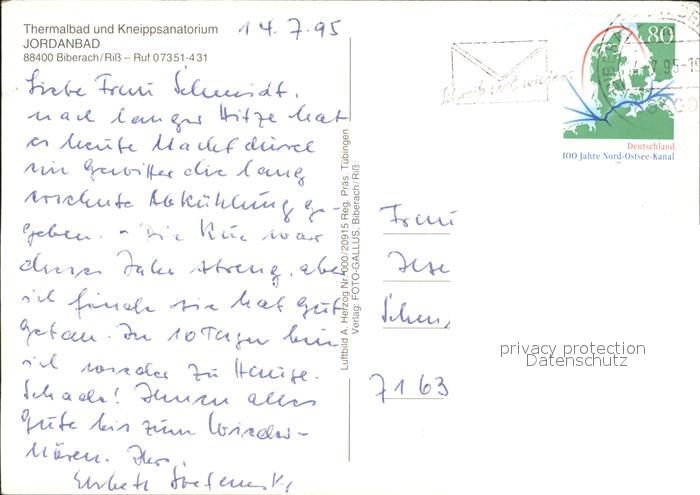 Thermalbad und Kneippsanatorium
JORDANBAD
88400 Biberach/Riß – Ruf 07351-431
14.7.95
Liebe Frau Schmidt,
nach langer Hitze hat
es heute Nacht durch
ein Gewitter die lang
ersehnte Abkühlung ge-
geben. - Die Kur war
dieses Jahr streng, aber
ich finde sie hat gut
getan. In 10 Tagen bin
ich wieder zu Hause.
Schade! Ihnen alles
Gute bis zum Wieder-
hören. Ihre
Elisabeth
Luftbild A. Herzog Nr. 000/20915 Reg. Präs. Tübingen
Verlag: FOTO-GALLUS, Biberach/Riß
80
7.95-1
Deutschland
100 Jahre Nord-Ostsee-Kanal
Frau
Ilse
Schm
7163
privacy protection
Datenschutz